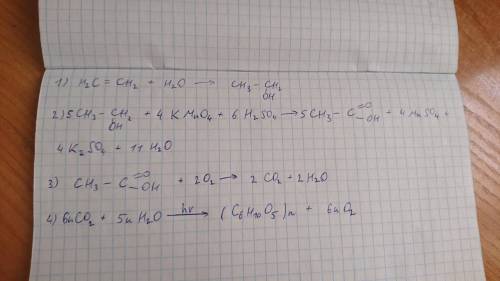 1) H₂C = CH₂ + H₂O → CH₃ – CH₂
OH
2) 5CH₃ – CH₂ + 4 KMnO₄ + 6 H₂SO₄ → 5CH₃ – C =O – OH + 4MnSO₄ +
OH
4K₂SO₄ + 11H₂O
3) CH₃ – C =O – OH + 2O₂ → 2CO₂ + 2H₂O
4) 6nCO₂ + 5nH₂O hν → (C₆H₁₀O₅)n + 6nO₂